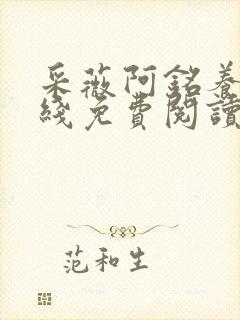 采薇阿銘養
綫免費閱讀
范和生